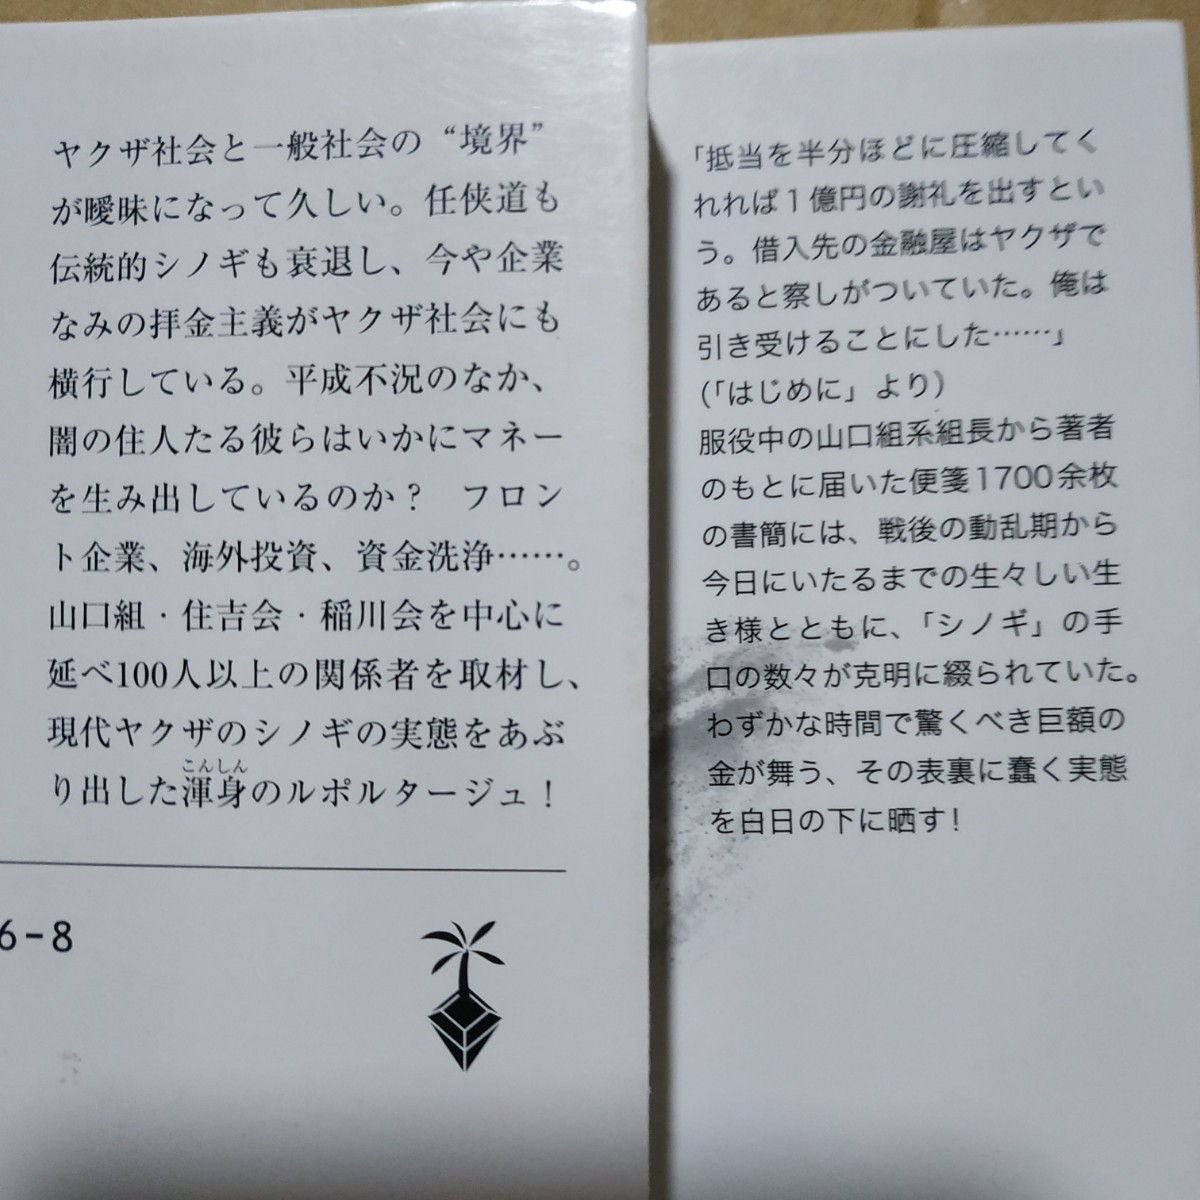 ヤクザ社会と一般社会の“境界”
が曖昧になって久しい。任侠道も
伝統的シノギも衰退し、今や企業
なみの拝金主義がヤクザ社会にも
横行している。平成不況のなか、
闇の住人たる彼らはいかにマネー
を生み出しているのか？　フロン
ト企業、海外投資、資金洗浄……。
山口組・住吉会・稲川会を中心に
延べ100人以上の関係者を取材し、
現代ヤクザのシノギの実態をあぶ
こんしん
り出した渾身のルポルタージュ！
6-8
「抵当を半分ほどに圧縮してく
れれば1億円の謝礼を出すとい
う。借入先の金融屋はヤクザで
あると察しがついていた。俺は
引き受けることにした……」
（「はじめに」より）
服役中の山口組系組長から著者
のもとに届いた便箋1700余枚
の書簡には、戦後の動乱期から
今日にいたるまでの生々しい生
き様とともに、「シノギ」の手
口の数々が克明に綴られていた。
わずかな時間で驚くべき巨額の
金が舞う、その表裏に蠢く実態
を白日の下に晒す！